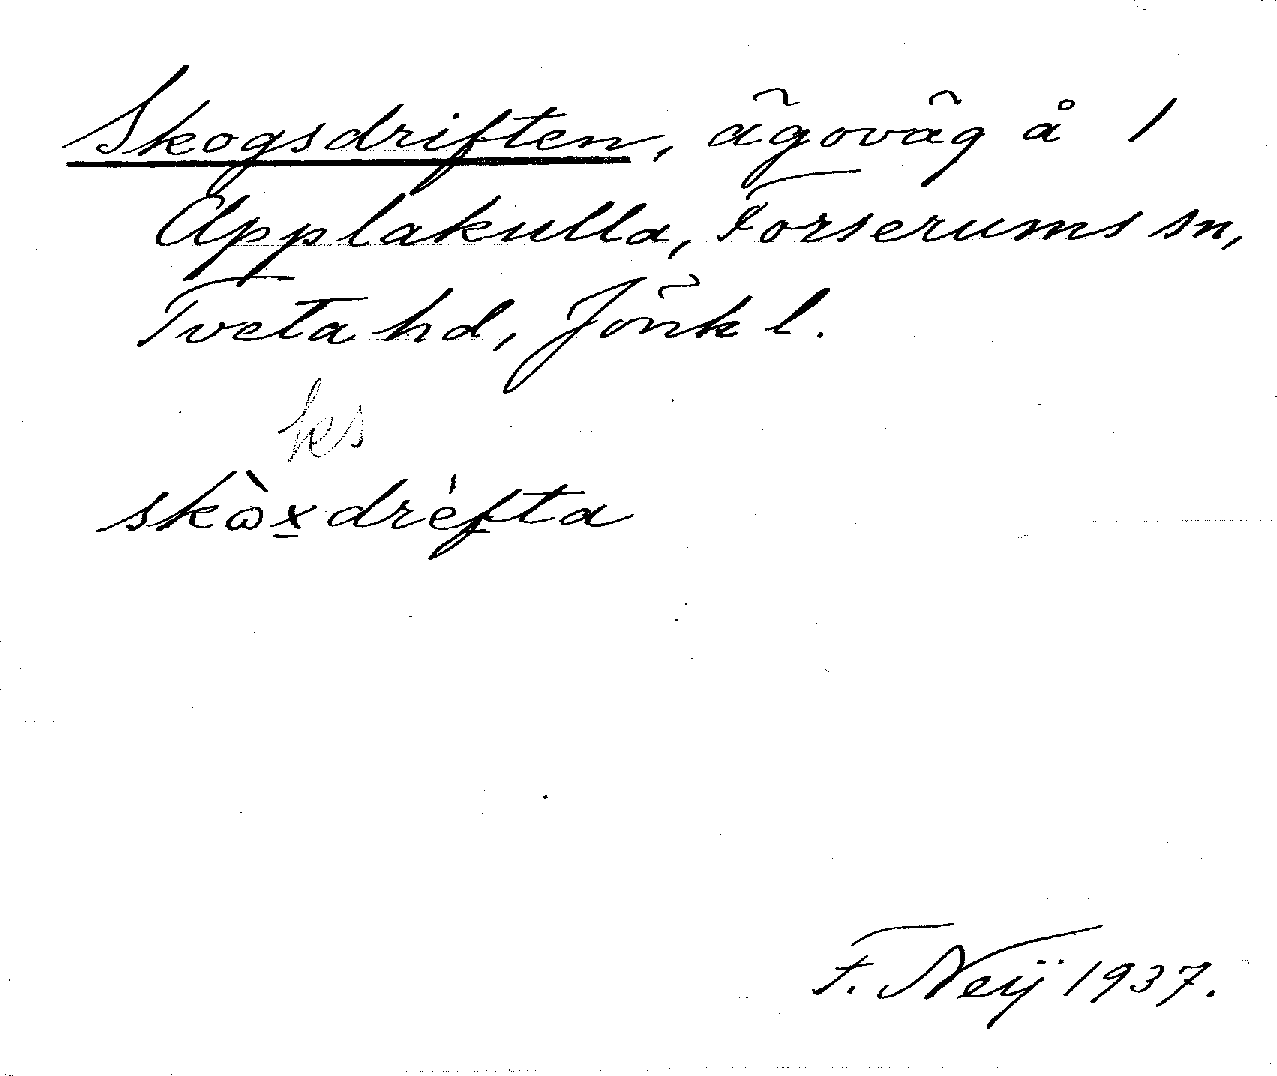 Skogsdriften, ägoväg å 1
Applakulla, Forserums sn,
Tveta hd, Jönk l.
ks
skὼx̱drėf̱ta
F. Neij 1937.